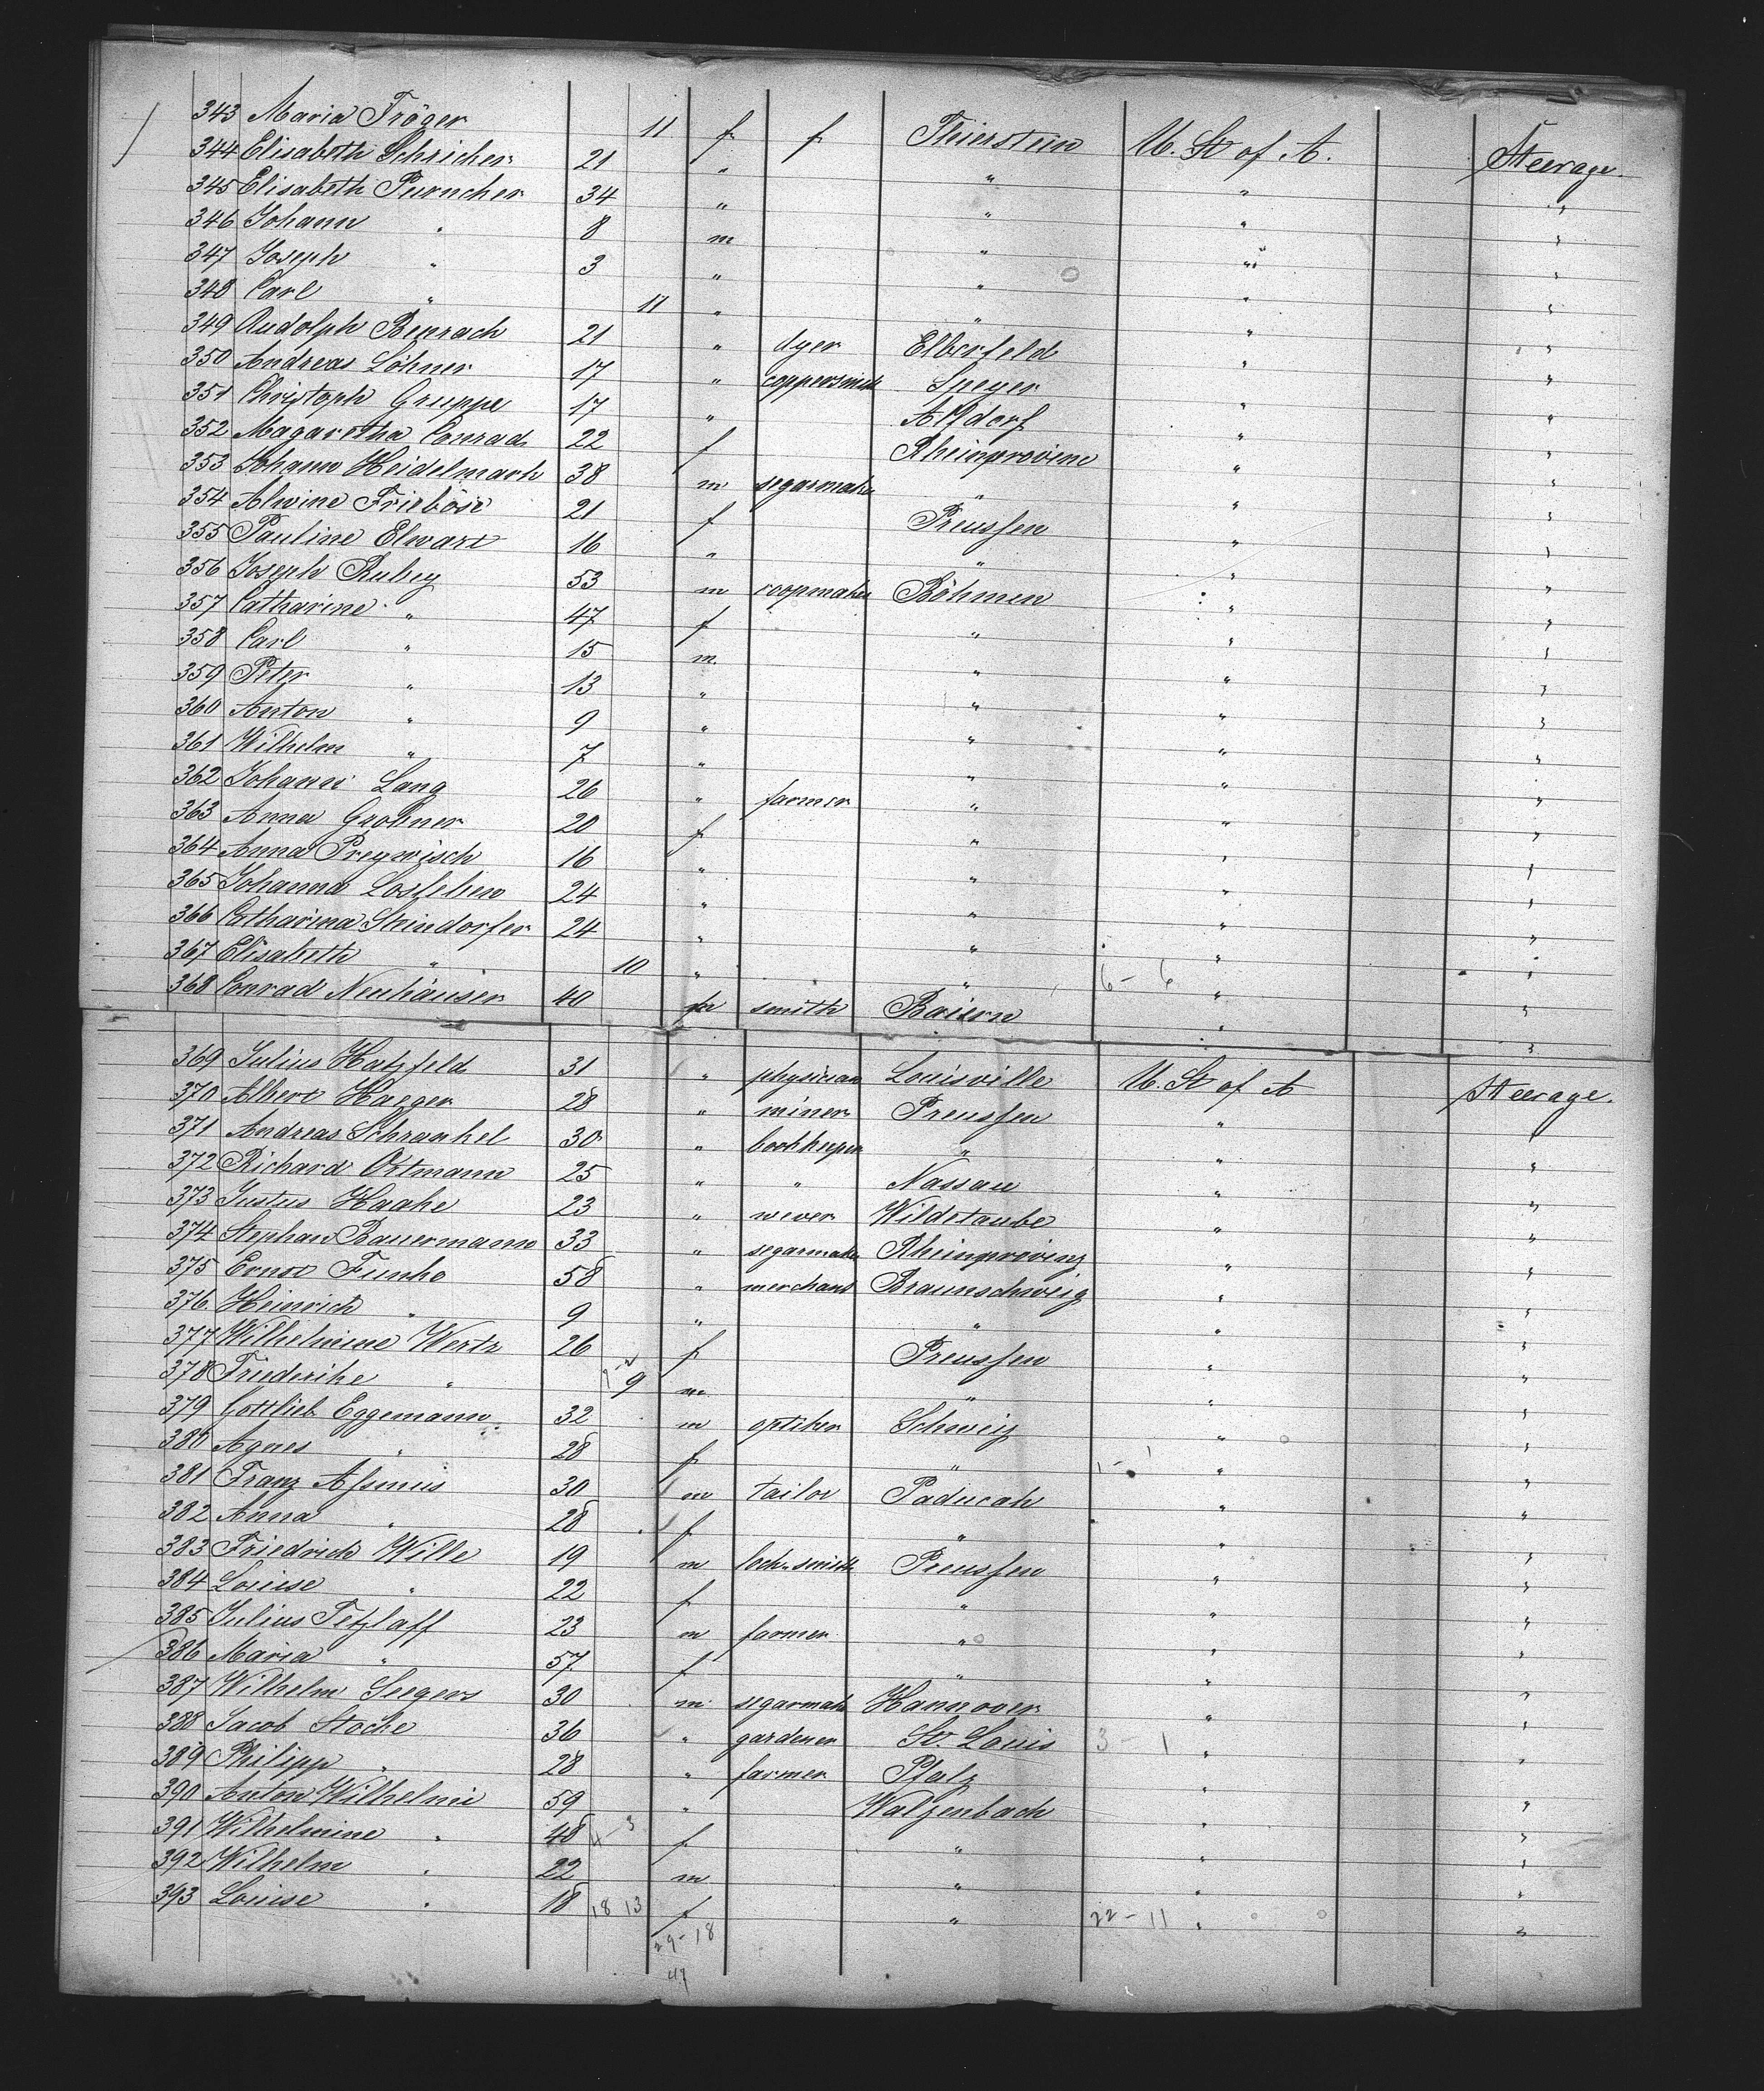 343 Maria Tröger 11 f f Thierstein U. St of A. Steerage.
344 Elisabeth Schricher 21 " " " "
345 Elisabeth Purucher 34 " " " "
346 Johann " 8 m " " "
347 Joseph " 3 " " " "
348 Carl " 11 " " " "
349 Rudolph Benrach 21 " dyer Elberfeld " "
350 Andreas Löhner 17 " coppersmith Speyer " "
351 Christoph Gruppe 17 " Altdorf " "
352 Magaretha Conrad 22 f Rheinprovinz " "
353 Johann Heidelmark 38 m segarmaker " " "
354 Alwine Frieböse 21 f Preussen " "
355 Pauline Elwart 16 " " " "
356 Joseph Rubey 53 m coopmaker Böhmen " "
357 Catharine " 47 f " " "
358 Carl " 15 m. " " "
359 Peter " 13 " " " "
360 Anton " 9 " " " "
361 Wilhelm " 7 " " " "
362 Johann Lang 26 " farmer " " "
363 Anna Grobner 20 f " " "
364 Anna Preywisch 16 " " " "
365 Johanna 24 " " " "
366 Catharina Steindorfer 24 " " " "
367 Elisabeth " 10 " " 6 - 6 " "
368 Conrad Neuhäuser 40 m smith Baiern " "
369 Julius Hatzfeld 31 " physician Louisville U. St of A Steerage.
370 Albert Haeger 28 " miner Preussen " "
371 Andreas Schrankel 30 " bookkeeper " " "
372 Richard Ortmann 25 " " Nassau " "
373 Justus Haake 23 " wever Wildetaube " "
374 Stephan Bauermann 33 " segarmaker Rheinprovinz " "
375 Ernst Funke 58 " merchant Braunschweig " "
376 Heinrich " 9 " " " "
377 Wilhelmine Wertz 26 f Preussen " "
378 Friederike " 9 m " " "
379 Gottlieb Eggemann 32 m optiker Schweiz " "
380 Agnes " 28 f " 1 - 1 " "
381 Franz Assmus 30 m tailor Paducah " "
382 Anna " 28 f " " "
383 Friedrich Wille 19 m lock-smith Preussen " "
384 Louise " 22 f " " "
385 Julius Tetzlaff 23 m farmer " " "
386 Maria " 57 f " " "
387 Wilhelm Seegers 30 m segarmaker Hannover " "
388 Jacob Stocke 36 " gardener St. Louis 3 - 1 " "
389 Philipp " 28 " farmer Pfalz " "
390 Anton Wilhelmi 59 " Walzenbach " "
391 Wilhelmine " 48 4 - 3 f " " "
392 Wilhelm " 22 m " " "
393 Louise " 18 18 13 f " 22 - 11 " "
29 - 18
47